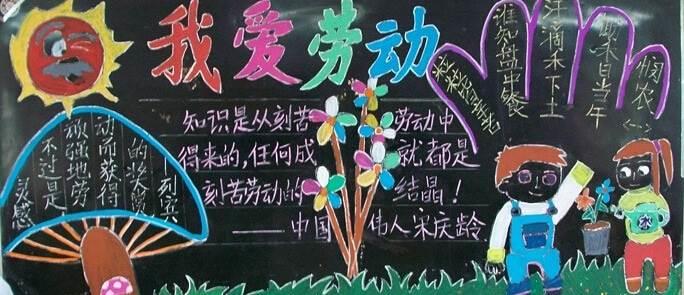 我爱劳动
灵感
不过是
顽强地劳
动而获得
的奖赏
——列宾
知识是从刻苦劳动中
得来的,任何成就都是
刻苦劳动的结晶!
——中国伟人宋庆龄
悯农<一>
锄禾日当午
汗滴禾下土
谁知盘中餐
粒粒皆辛苦